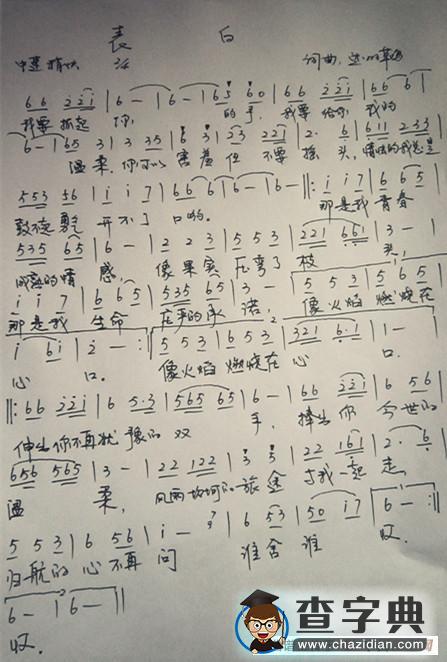 表 白
中速 稍快 词曲:
6 6 2 2 1 | 6 — | 6 — | 6 5 6 0 | 6 6 2 2 1 | 6 6 6 |
我要抓起 你 的手, 我要给你 我的
6 — | 6 5 3 | 3 3 5 | 6 3 | 2 3 2 2 1 | 2· 6 | 6 1 1 2 3 3 |
温柔, 你可以害羞但不要摇头, 情怯的我总是
5 5 3 5 6 | i i 7 | 6 6 6 | 6 — | 6 — ‖: i i 7 | 6 6 5 |
鼓不起勇气 开不了口哟。 那是我 青春
5 3 5 6 5 | 6 — | 2 2 3 | 5 5 3 | 2 2 1 6 6 1 | 3 — |
成熟的情 感, 像果实 压弯了 枝 头,
i i 7 | 6 6 5 | 5 3 5 6 5 | 3 — | 5 5 3 | 5 6 5 |
那是我 生命 庄严的承 诺, 像火焰 燃烧在
i 6 i | 2 — :‖ 5 5 3 | 6 5 3 | 3 2 1 6·1 | 1 — |
心 口. 像火焰 燃烧在 心 口.
‖: 6 6 2 2 i | 6 5·3 | 5 6 5 6 5 | 6 — | 6 6 2 2 i | 6 5 6 |
伸出你不再犹豫的双 手, 捧出你 今世的
6 5 6 5 6 5 | 3 — | 2 2 1 2 2 | 3 5 | 2 2 1 6 1 | 2· 6 |
温 柔, 风雨坎坷的旅途 与我一起走,
5 5 3 | 6 5 6 | i — | 6 5 3 | 5 0 i 7 | 6 — :‖
归航的心不再问 谁舍谁 收.
6 — | 6 — ‖
收.
查字典
www.chazidian.com